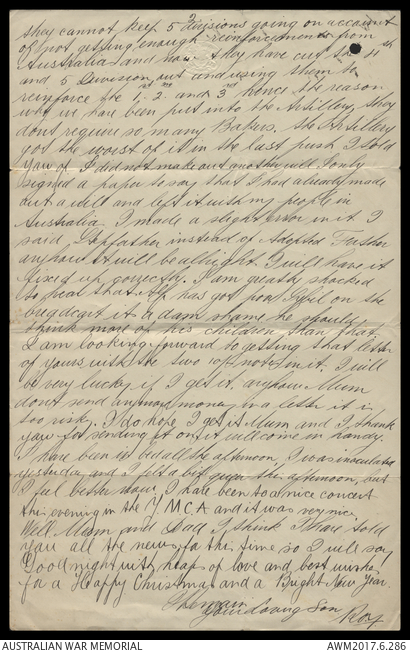 they cannot keep 5 divisions going on account
of not getting enough reinforcements from
Australia and now they have cut the 4th
and 5 Division out and using them to
reinforce the 1st 2nd and 3rd hence the reason
why we have been put into the Artillery, they
dont require so many Bakers, the Artillery
got the worst of it in the last push I told
you of I did not make out another will I only
signed a paper to say that I had already made
out a will and left it with my people in
Australia. I made a slight error in it I
said, Stepfather instead of Adopted Father
anyhow it will be allright I will have it
fixed up correctly. I am greatly shocked
to hear that has got poor on the
it a damn shame he should
think more of his children than that.
I am looking forward to getting that letter
of yours with the two notes in it. I will
be very lucky if I get it, anyhow Mum
dont send anymore money in a letter it is
too risky. I do hope I get it Mum and I thank
you for sending it on it will come in handy.
I have been in bed all the afternoon, I was inoculated
yesterday and I felt a bit queer this afternoon, but
I feel better now, I have been to a nice concert
this evening in the Y.M.C.A and it was very nice.
Well Mum and Dad I think I have told
you all the news for this time so I will say
Goodnight with heaps of love and best wishes
for a Happy Christmas and a Bright New Year.
I remain
Your Loving Son
Roy
AUSTRALIAN WAR MEMORIAL
AWM2017.6.286